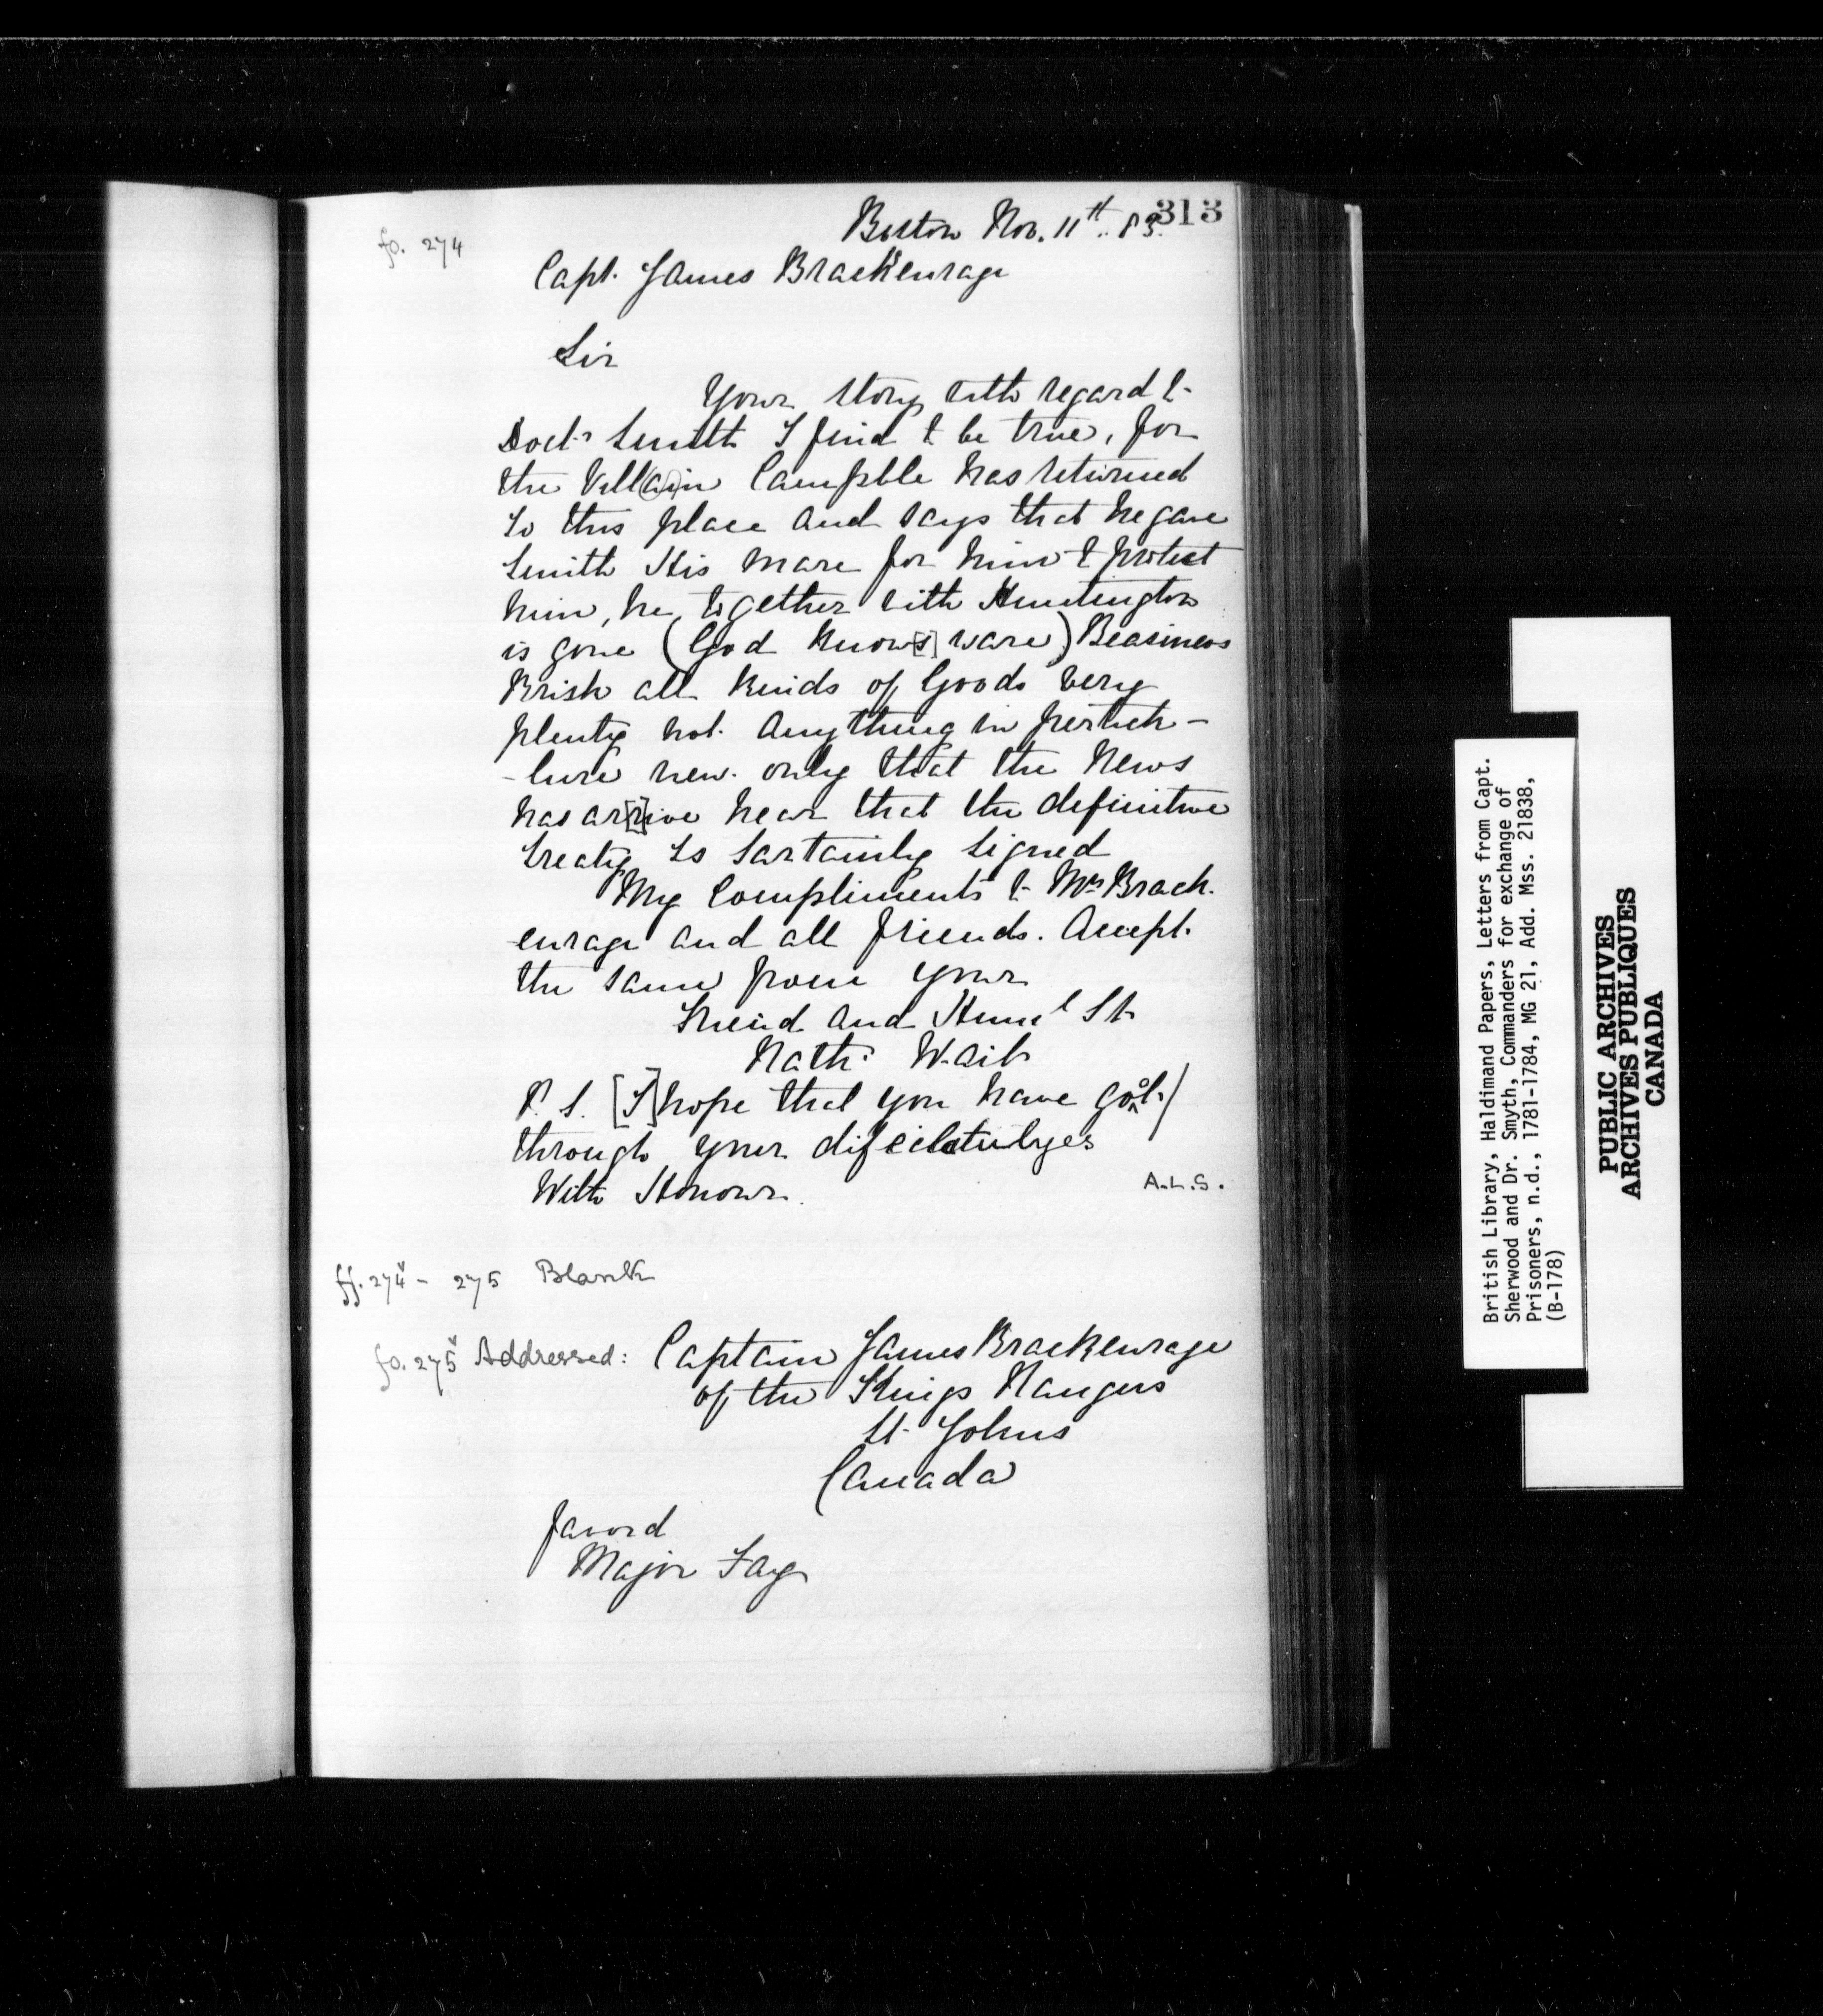 313
Boston Nov. 11th.. 83.
fo. 274
Capt. James Brackenrage
Sir
Your story with regard to
Doctr Smith I find to be true, for
the Vill(a)in Campble has returned
to this place and says that he gave
Smith His mare for him to protect
him, he together with Huntington
is gone (God know[s] ware) Beasiness
Brisk all kinds of Goods very
plenty not anything in pertick-
-lure new. only that the News
has ar[r]ive hear that the definitive
treaty Is Sartainly signed
My Compliments to Mrs Brack.
enrage and all friends. Accept
the same from your
Freind and Huml St
Nathl Wait
P. S. [I] hope that you have got
through your
With Honour.
A.L.S.
ff. 274v - 275 Blank
fo. 275v Addressed: Captain James Brackenrage
of the Kings Rangers
St. Johns
Canada
favord
Major Fay
British Library, Haldimand Papers, Letters from Capt.
Sherwood and Dr. Smyth, Commanders for exchange of
Prisoners, n.d., 1781-1784, MG 21, Add. Mss. 21838,
(B-178)
PUBLIC ARCHIVES
ARCHIVES PUBLIQUES
CANADA